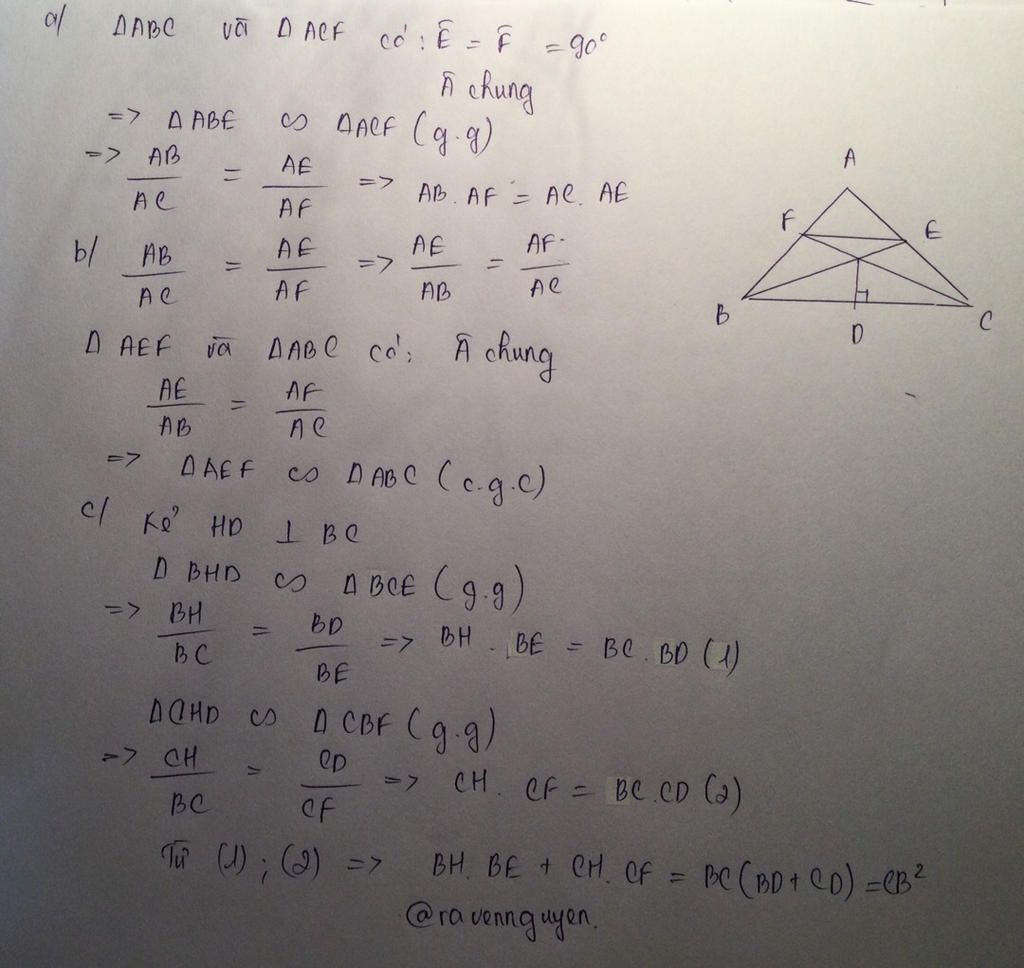 a/ ΔABC và ΔACF có: Ê = F̂ = 90°
Â chung
=> ΔABE ∽ ΔACF (g.g)
=> AB/AC = AE/AF => AB.AF = AC.AE
b/ AB/AC = AE/AF => AE/AB = AF/AC
ΔAEF và ΔABC có: Â chung
AE/AB = AF/AC
=> ΔAEF ∽ ΔABC (c.g.c)
c/ Kẻ HD ⊥ BC
ΔBHD ∽ ΔBCE (g.g)
=> BH/BC = BD/BE => BH.BE = BC.BD (1)
ΔCHD ∽ ΔCBF (g.g)
=> CH/BC = CD/CF => CH.CF = BC.CD (2)
Từ (1);(2) => BH.BE + CH.CF = BC(BD+CD)=CB²
@ravennguyen.
A
F
E
B
D
C